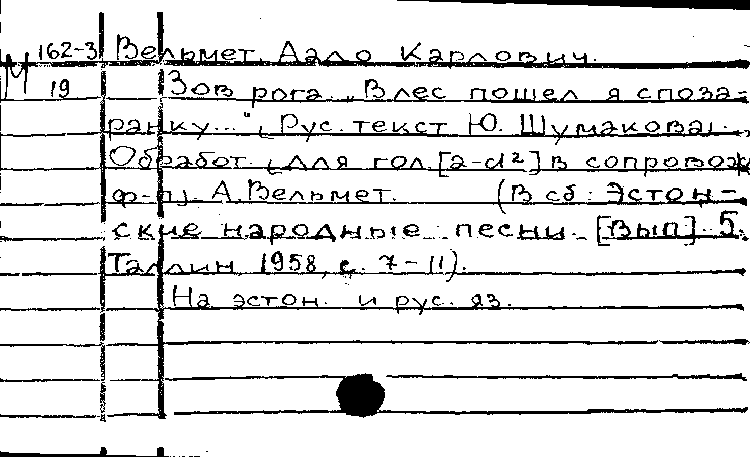 М 162-3 Вельмет, Аало Карлович.
19 Зов рога. „В лес пошел я споза-
ранку..." [Рус. текст Ю. Шумакова].
Обработ. [для гол. [a-d²] в сопровож
ф-п] А. Вельмет. (В сб.: Эстон-
ские народные песни. [Вып]. 5.
Таллин, 1958, с. 7-11).
На эстон. и рус. яз.